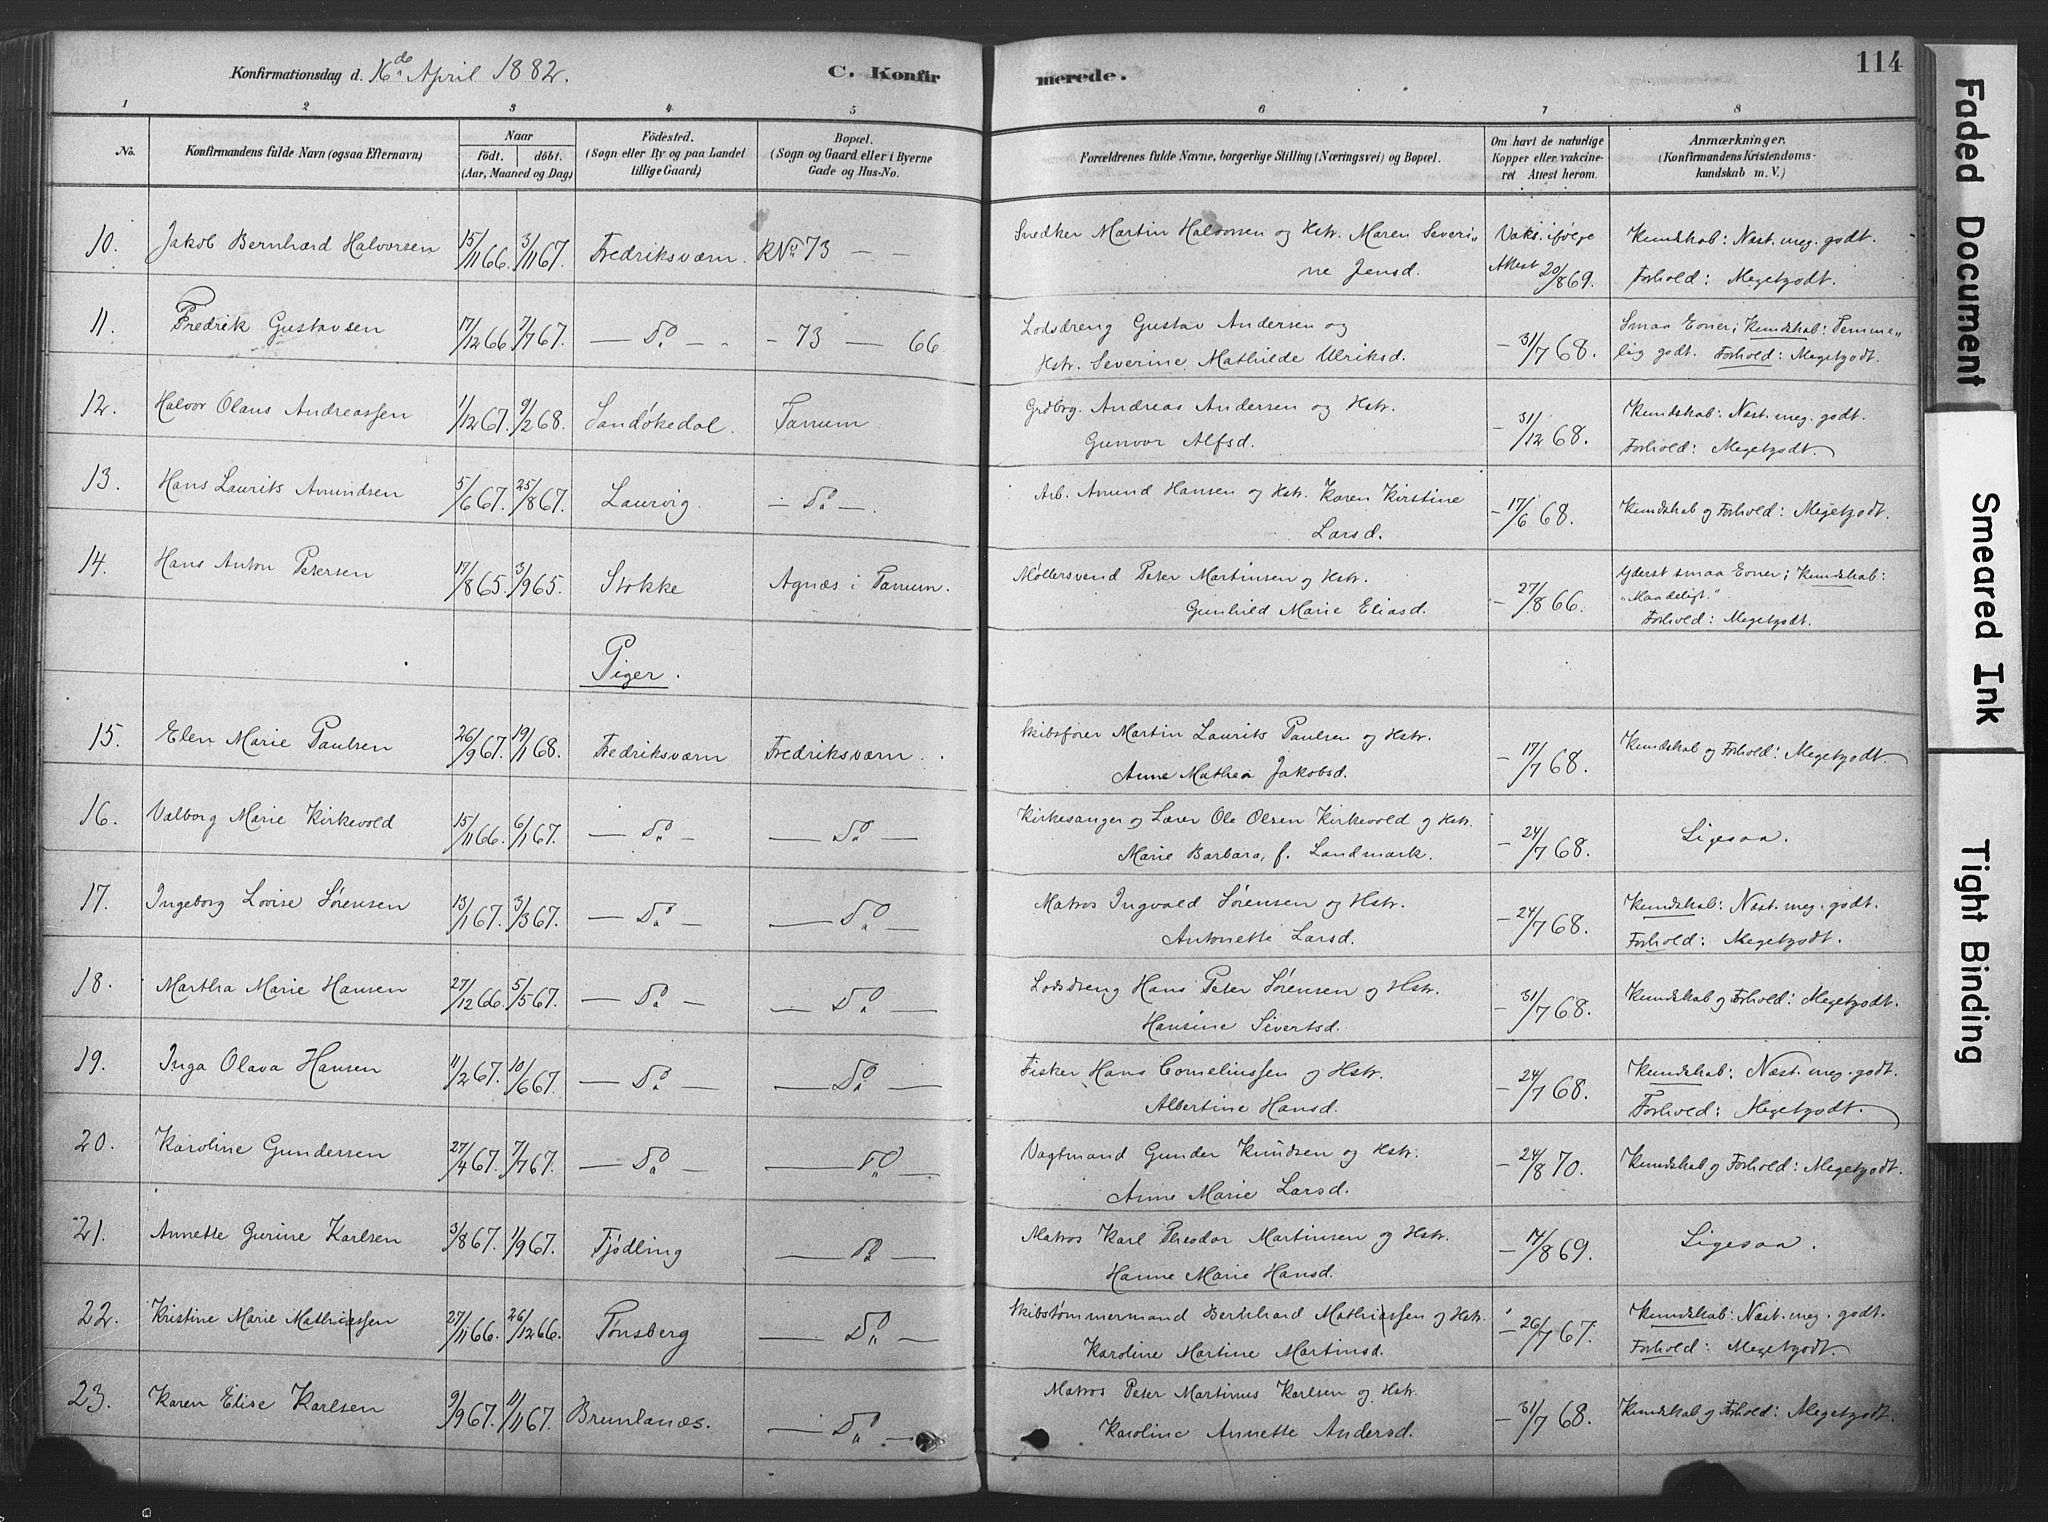 Konfirmationsdag d. 16de April 1882. C. Konfirmerede. 114
1 2 3 4 5 6 7 8
No. Konfirmandens fulde Navn (ogsaa Efternavn) Naar födt. döbt. (Aar, Maaned og Dag) Födested. (Sogn eller By og paa Landet tillige Gaard) Bopæl. (Sogn og Gaard eller i Byerne Gade og Hus-No. Forældrenes fulde Navne, borgerlige Stilling (Næringsvei) og Bopæl. Om havt de naturlige Kopper eller vakcineret Attest herom. Anmærkninger. (Konfirmandens Kristendomskundskab m. V.)
10. Jakob Bernhard Halvorsen 15/11 66. 3/11 67. Fredriksværn. RNo 73 — — Snedker Martin Halvorsen og Hstr. Maren Severi„ Vaks. ifølge Kundskab: Næst. meg. godt.
ne Jensd. Attest 20/8 69. Forhold: Megetgodt.
11. Fredrik Gustavsen 17/12 66 7/7 67. — Do - - - 73 — 66 Lodsdreng Gustav Andersen og — 31/7 68. Smaa Evner; Kundskab: Temme„
Hstr. Severine Mathilde Ulriksd. lig godt. Forhold: Megetgodt.
12. Halvor Olaus Andreassen 1/12 67. 9/2 68. Sandøkedal. Tanum. Grdbrg. Andreas Andersen og Hstr. — 31/12 68. Kundskab: Næst. meg. godt.
Gunvor Alfsd. Forhold: Megetgodt.
13. Hans Laurits Amundsen 5/6 67. 25/8 67. Laurvig. — Do —. Arb. Amund Hansen og Hstr. Karen Kirstine — 17/6 68. Kundskab og Forhold: Megetgodt.
Larsd.
14. Hans Anton Petersen 17/8 65. 3/9 65. Stokke Agnæs i Tanum. Møllersvend Peter Martinsen og Hstr. — 27/8 66. Yderst smaa Evner; Kundskab:
Gunhild Marie Eliasd. „Maadeligt."
Forhold: Megetgodt.
Piger.
15. Elen Marie Paulsen 26/9 67. 19/1 68. Fredriksværn Fredriksværn. Skibsfører Martin Laurits Paulsen og Hstr. — 17/7 68. Kundskab og Forhold: Megetgodt.
Anne Mathea Jakobsd.
16. Valborg Marie Kirkevold 15/11 66. 6/1 67. — Do — — Do — Kirkesanger og Lærer Ole Olsen Kirkevold og Hstr. — 24/7 68. Ligesaa.
Marie Barbara, f. Landmark.
17. Ingeborg Lovise Sørensen 13/1 67. 3/3 67. — Do — — Do — Matros Ingvald Sørensen og Hstr. — 24/7 68. Kundskab: Næst. meg. godt.
Antonette Larsd. Forhold: Megetgodt.
18. Martha Marie Hansen 27/12 66. 5/5 67. — Do — — Do — Lodsdreng Hans Peter Sørensen og Hstr. — 31/7 68. Kundskab og Forhold: Megetgodt.
Hansine Sivertsd.
19. Inga Olava Hansen 11/2 67. 10/6 67. — Do — — Do — Fisker Hans Corneliussen og Hstr. — 24/7 68. Kundskab: Næst. meg. godt.
Albertine Hansd. Forhold: Megetgodt.
20. Karoline Gundersen 27/4 67. 7/7 67. — Do — — Do — Vagtmand Gunder Knudsen og Hstr. — 24/8 70. Kundskab og Forhold: Megetgodt.
Anne Marie Larsd.
21. Annette Gurine Karlsen 3/8 67. 1/9 67. Tjødling — Do — Matros Karl Theodor Martinsen og Hstr. — 17/8 69. Ligesaa.
Hanne Marie Hansd.
22. Kristine Marie Mathiassen 27/11 66. 26/12 66. Tønsberg — Do — Skibstømmermand Bernhard Mathiassen og Hstr. — 26/7 67. Kundskab: Næst. meg. godt
Karoline Martine Martinsd. Forhold: Megetgodt.
23. Karen Elise Karlsen 9/9 67. 11/11 67. Brunlanæs. — Do — Matros Peter Martinus Karlsen og Hstr. — 31/7 68. Kundskab og Forhold: Megetgodt.
Karoline Annette Andersd.
Faded Document
Smeared Ink
Tight Binding